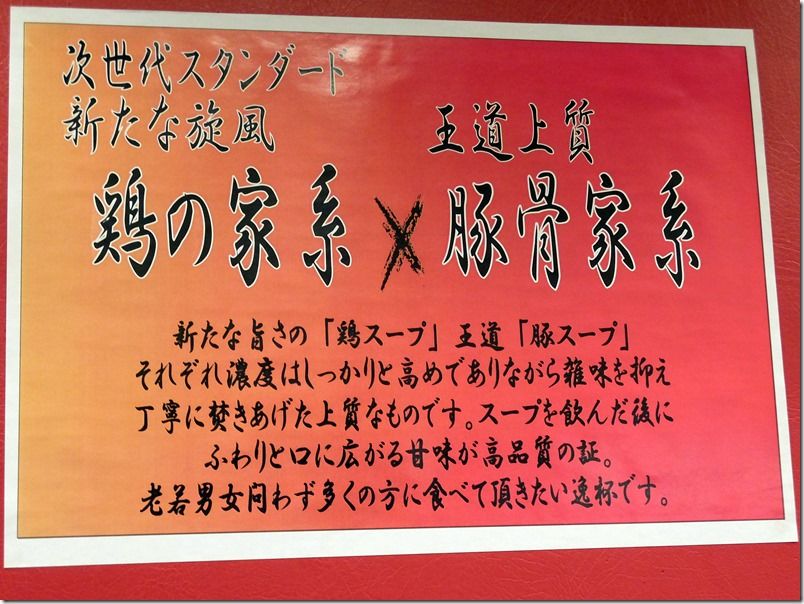 次世代スタンダード
新たな旋風
王道上質
鶏の家系×豚骨家系
新たな旨さの「鶏スープ」王道「豚スープ」
それぞれ濃度はしっかりと高めでありながら雑味を抑え
丁寧に焚きあげた上質なものです。スープを飲んだ後に
ふわりと口に広がる甘味が高品質の証。
老若男女問わず多くの方に食べて頂きたい逸杯です。